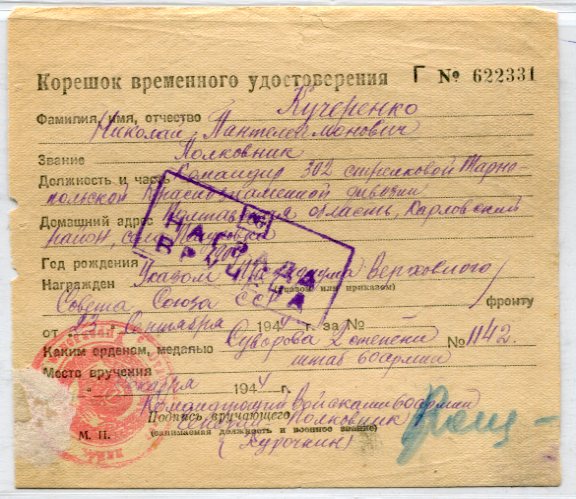 Корешок временного удостоверения Г № 622331
Фамилия, имя, отчество Кучеренко
Николай Пантелеймонович
Звание Полковник
Должность и часть Командир 302 стрелковой Тарно-
польской Краснознаменной дивизии
Домашний адрес Полтавская область, Карловский
район, село
Год рождения
Награжден Указом Президиума Верховного
(указом или приказом)
Совета Союза ССР фронту
от 23 Сентября 1944 г. за №
Каким орденом, медалью Суворова 2 степени № 1142.
штаб 60 армии
Место вручения
Октября 1944 г.
Командующий Войсками 60 армии
Подпись вручающего Генерал Полковник
М. П. (занимаемая должность и военное звание)
(Курочкин)
НАГРАДА
ВРУЧЕНА